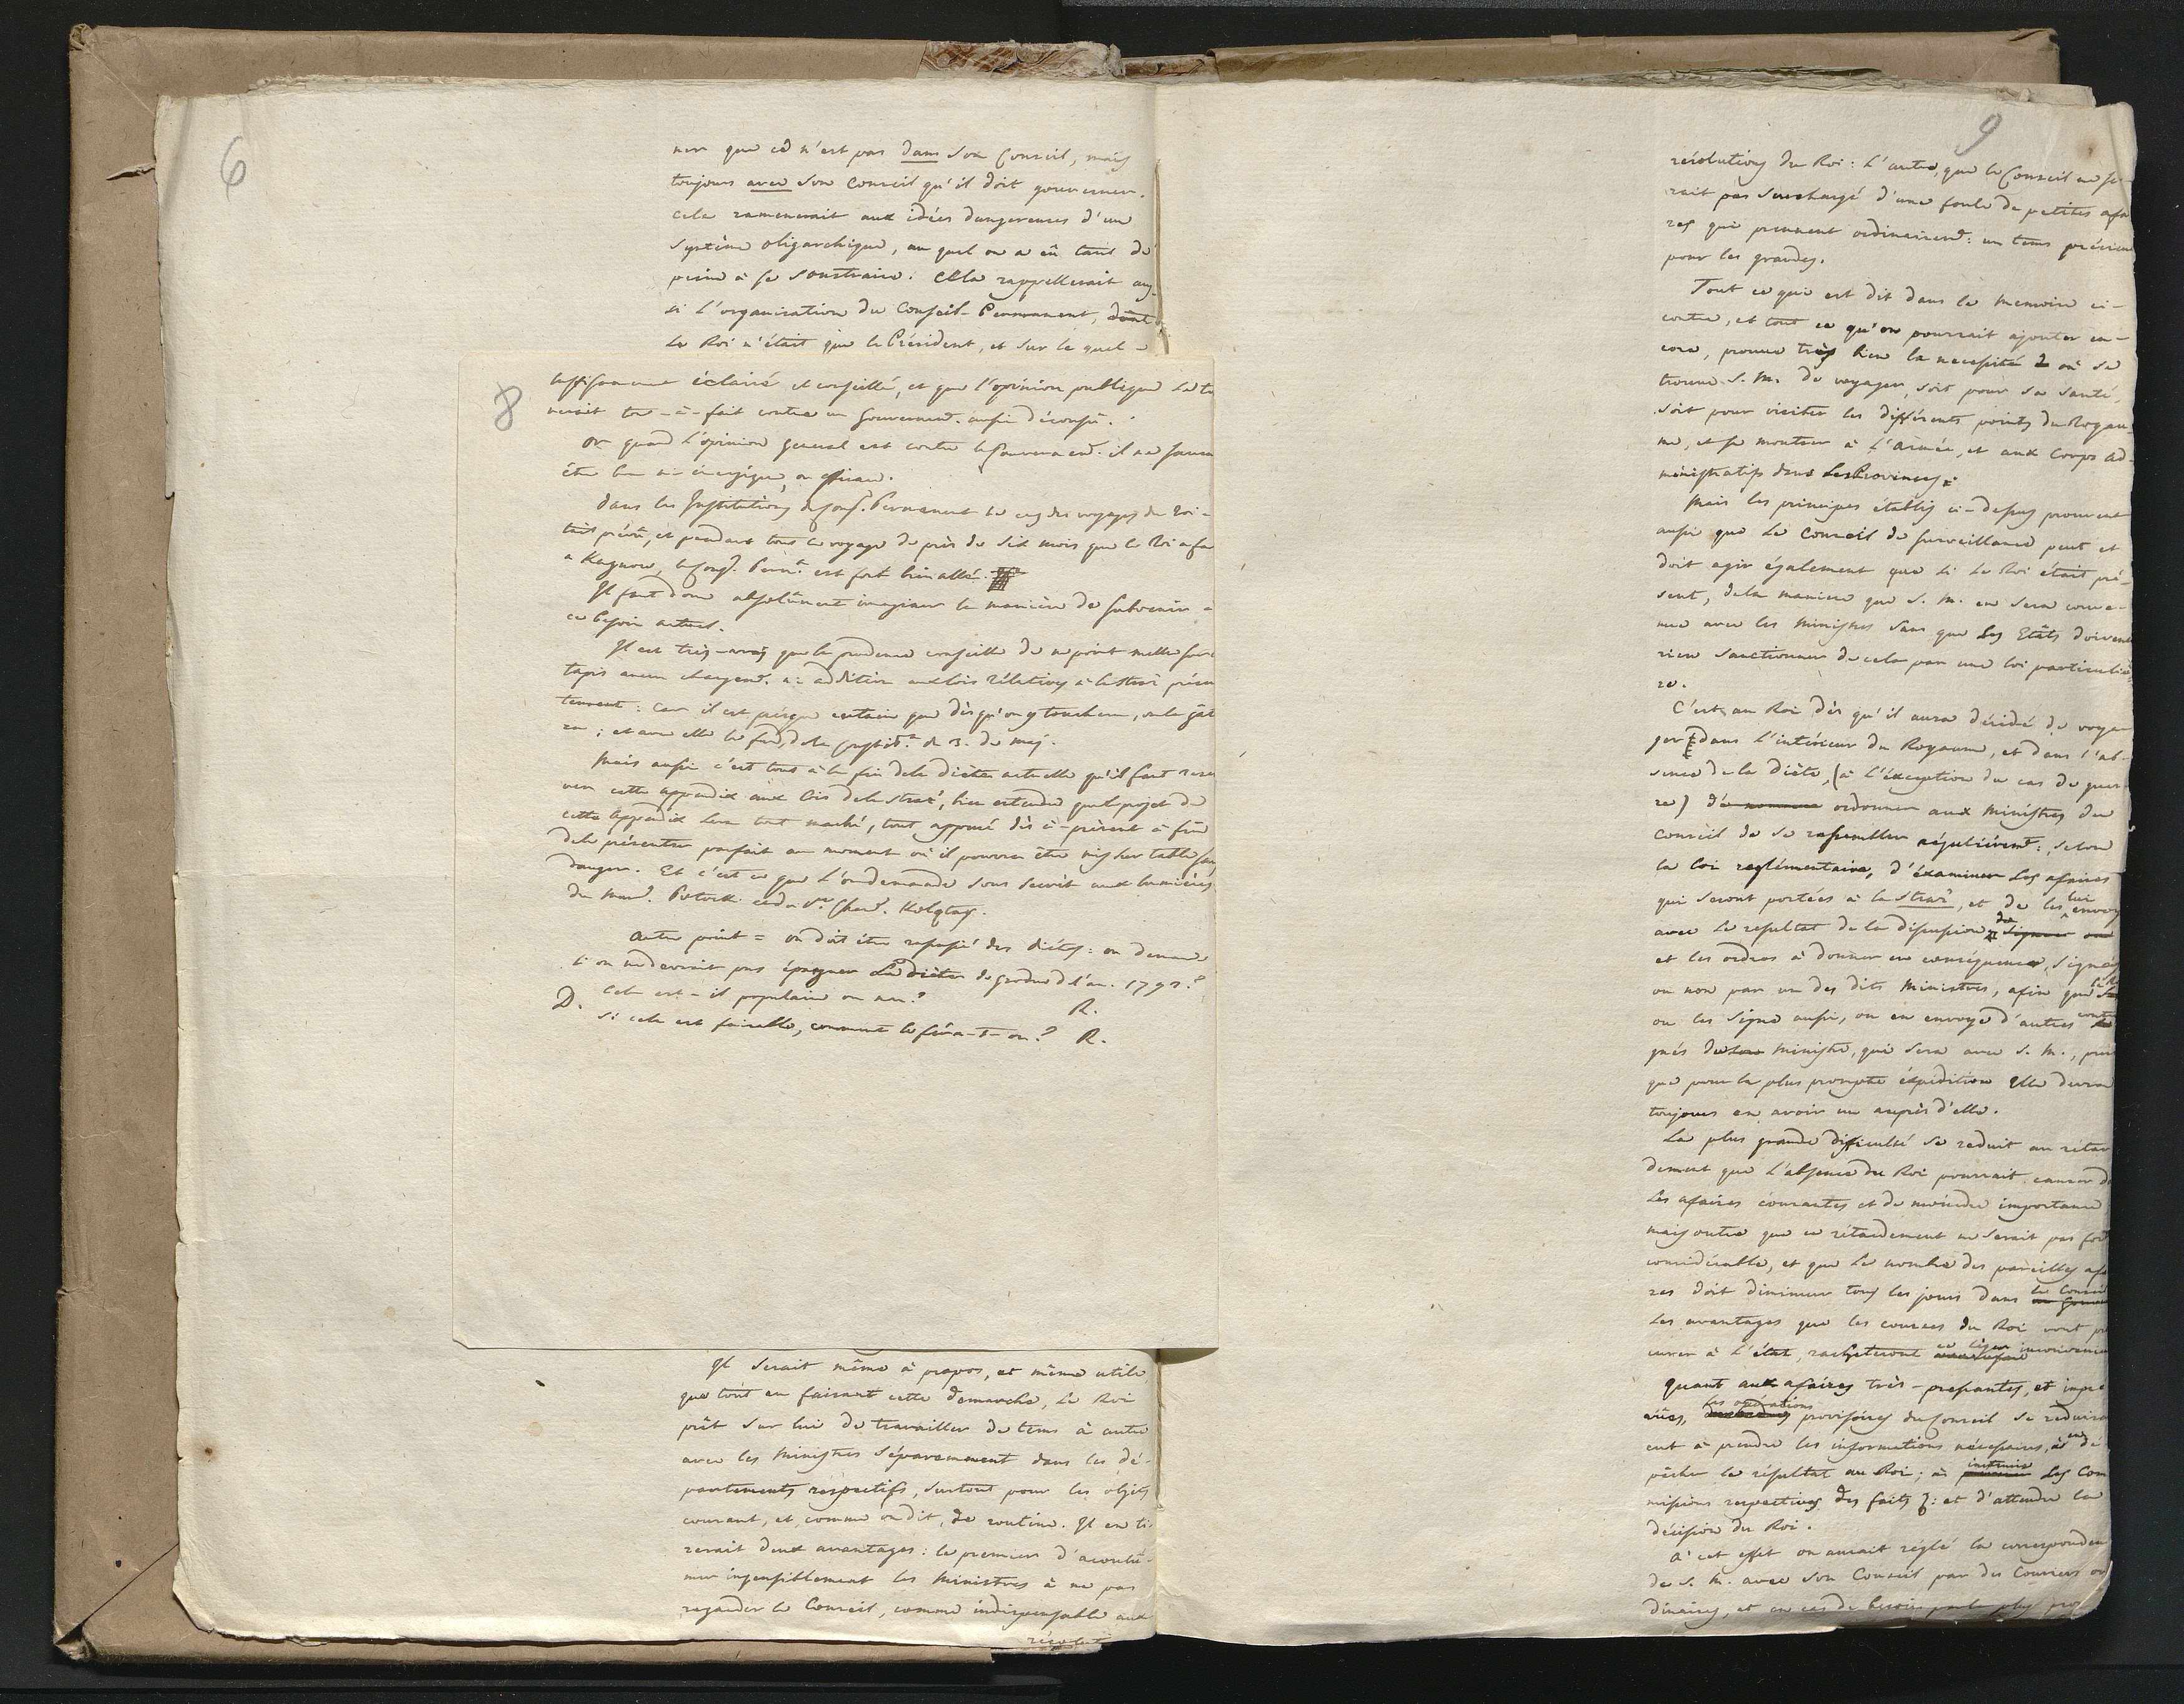 6
ner que ce n'est pas dans son Conseil, mais
toujours avec son Conseil qu'il doit gouverner.
cela ramenerait aux idées dangereuses d'un
système oligarchique, au quel on a eû tant de
peine à se soustraire. Cela rappellerait aus-
si l'organisation du Conseil-Permanent, dont
le Roi n'était que le Président, et sur le quel
8
suffisamment éclairé et conseillé, et que l'opinion publique se to
neroit tou-à-fait contre un Gouvernemt. aussi décousu.
Or quand l'opinion general est contre le Gouvernemt. il ne sauro
être bon ni énergique, ou efficace.
Dans les Institutions du Cons. Permanent le cas des voyages du Roi-
tait prévû, et pendant tous le voyage de près de six mois que le Roi a fa
a Kagnow, le Cons. Permt. est fort bien allé.
Il faut donc absolûment imaginer la manière de subvenir a
ce besoin actuel.
Il est très-vrai que la prudence conseille de ne point mettre sur
tapis aucun changemt. ni addition aux lois rélatives à la Straż présen
tement: car il est presque certain que dès qu'on y touchera, on la gât
ra; et avec elle le fond de la Constitn. de 3. de Maj.
Mais aussi c'est tout à la fin de la diète actuelle qu'il faut reser
ver cette appendix aux lois de la Straż, bien entendu que le projet de
cette appendix sera tout maché, tout apprué dès à-présent à fin
de le présenter parfait au moment où il pourra être mis sur table san
danger. Et c'est ce que l'on demande sous secrèt aux lumières
du Mard. Potocki et du Vce Chand. Kołątay.
Autre point = on doit être rassasié des diètes: on demande
si on ne devrait pas épargner la Diète de Grodno de l'an. 1792.?
Cela est-il populaire ou non? R.
D. Si cela est faisable, comment le fera-t-on? R.
Il serait même à propos, et même utile
que tout en faisant cette demarche, le Roi
prit sur lui de travailler de tems à autre
avec les Ministres séparemment dans les dé-
partements réspectifs, surtout pour les objets
courant, et, comme on dit, de routine. Il en ti-
rerait deux avantages: le premier d'acoutû-
mer insensiblement les Ministres à ne pas
regarder le Conseil, comme indispensable aux
résolut
9
résolutions du Roi: L'autre, que le Conseil ne se-
rait pas surchargé d'une foule de petites afai
res qui prennent ordinairemt: un tems précieu
pour les grandes.
Tout ce qui est dit dans le memoire ci-
contre, et tout ce qu'on pourrait ajouter en-
core, prouve très bien la necessité où se
trouve S. M. de voyager, soit pour sa santé,
soit pour visiter les différents points du Royau-
me, et se montrer à l'Armée, et aux Corps Ad-
ministratifs dans les Provinces.
Mais les principes établis ci-dessus prouvent
aussi que le Conseil de surveillance peut et
doit agir également que si le Roi était pré-
sent, de la maniere que S. M. en sera conve-
nue avec les Ministres sans que les Etâts doivent
rien sanctionner de cela par une loi particuliè-
re.
C'est au Roi dès qu'il aura décidé de voya
ger dans l'intérieur du Royaume, et dans l'ab-
sence de la Diète, (à l'éxception du cas de guer
re) de nommer ordonner aux Ministres du
Conseil de se rassembler régulièremt:, selon
la loi reglémentaire, d'éxaminer les afaires
qui seront portées à la Straż, et de les lui envoy
avec le resultat de la discussion de signer ou
et les ordres à donner en conséquence, signés
ou non par un des dits Ministres, afin que le Roi
ou les signe aussi, ou en envoye d'autres contre
gnés du Ministre, qui sera avec S. M., puis
que pour la plus prompte éxpédition Elle devra
toujours en avoir un auprès d'elle.
La plus grande difficulté se reduit au rétar
dement que l'absence du Roi pourrait causer d
les afaires courantes et de moindre importance
mais outre que ce rétardement ne serait pas fort
considérable, et que le nombre des pareilles afai
res doit diminuer tous les jours dans le Conseil
les avantages que les courses du Roi vont pr
curer à l'état, rachêteront ce léger inconvenien
Quant aux afaires très-pressantes, et impré
vûes, les opérations provisoires du Conseil se reduira
ent à prendre les informations nécessaires, à en dé
pêcher le résultat au Roi; à instruire les Com
missions respectives des faits; et d'attendre la
décision du Roi.
A cet effet on aurait réglé la corresponden
de S. M. avec son Conseil par des Couriers or
dinaires, et en cas de besoin par le plus pro